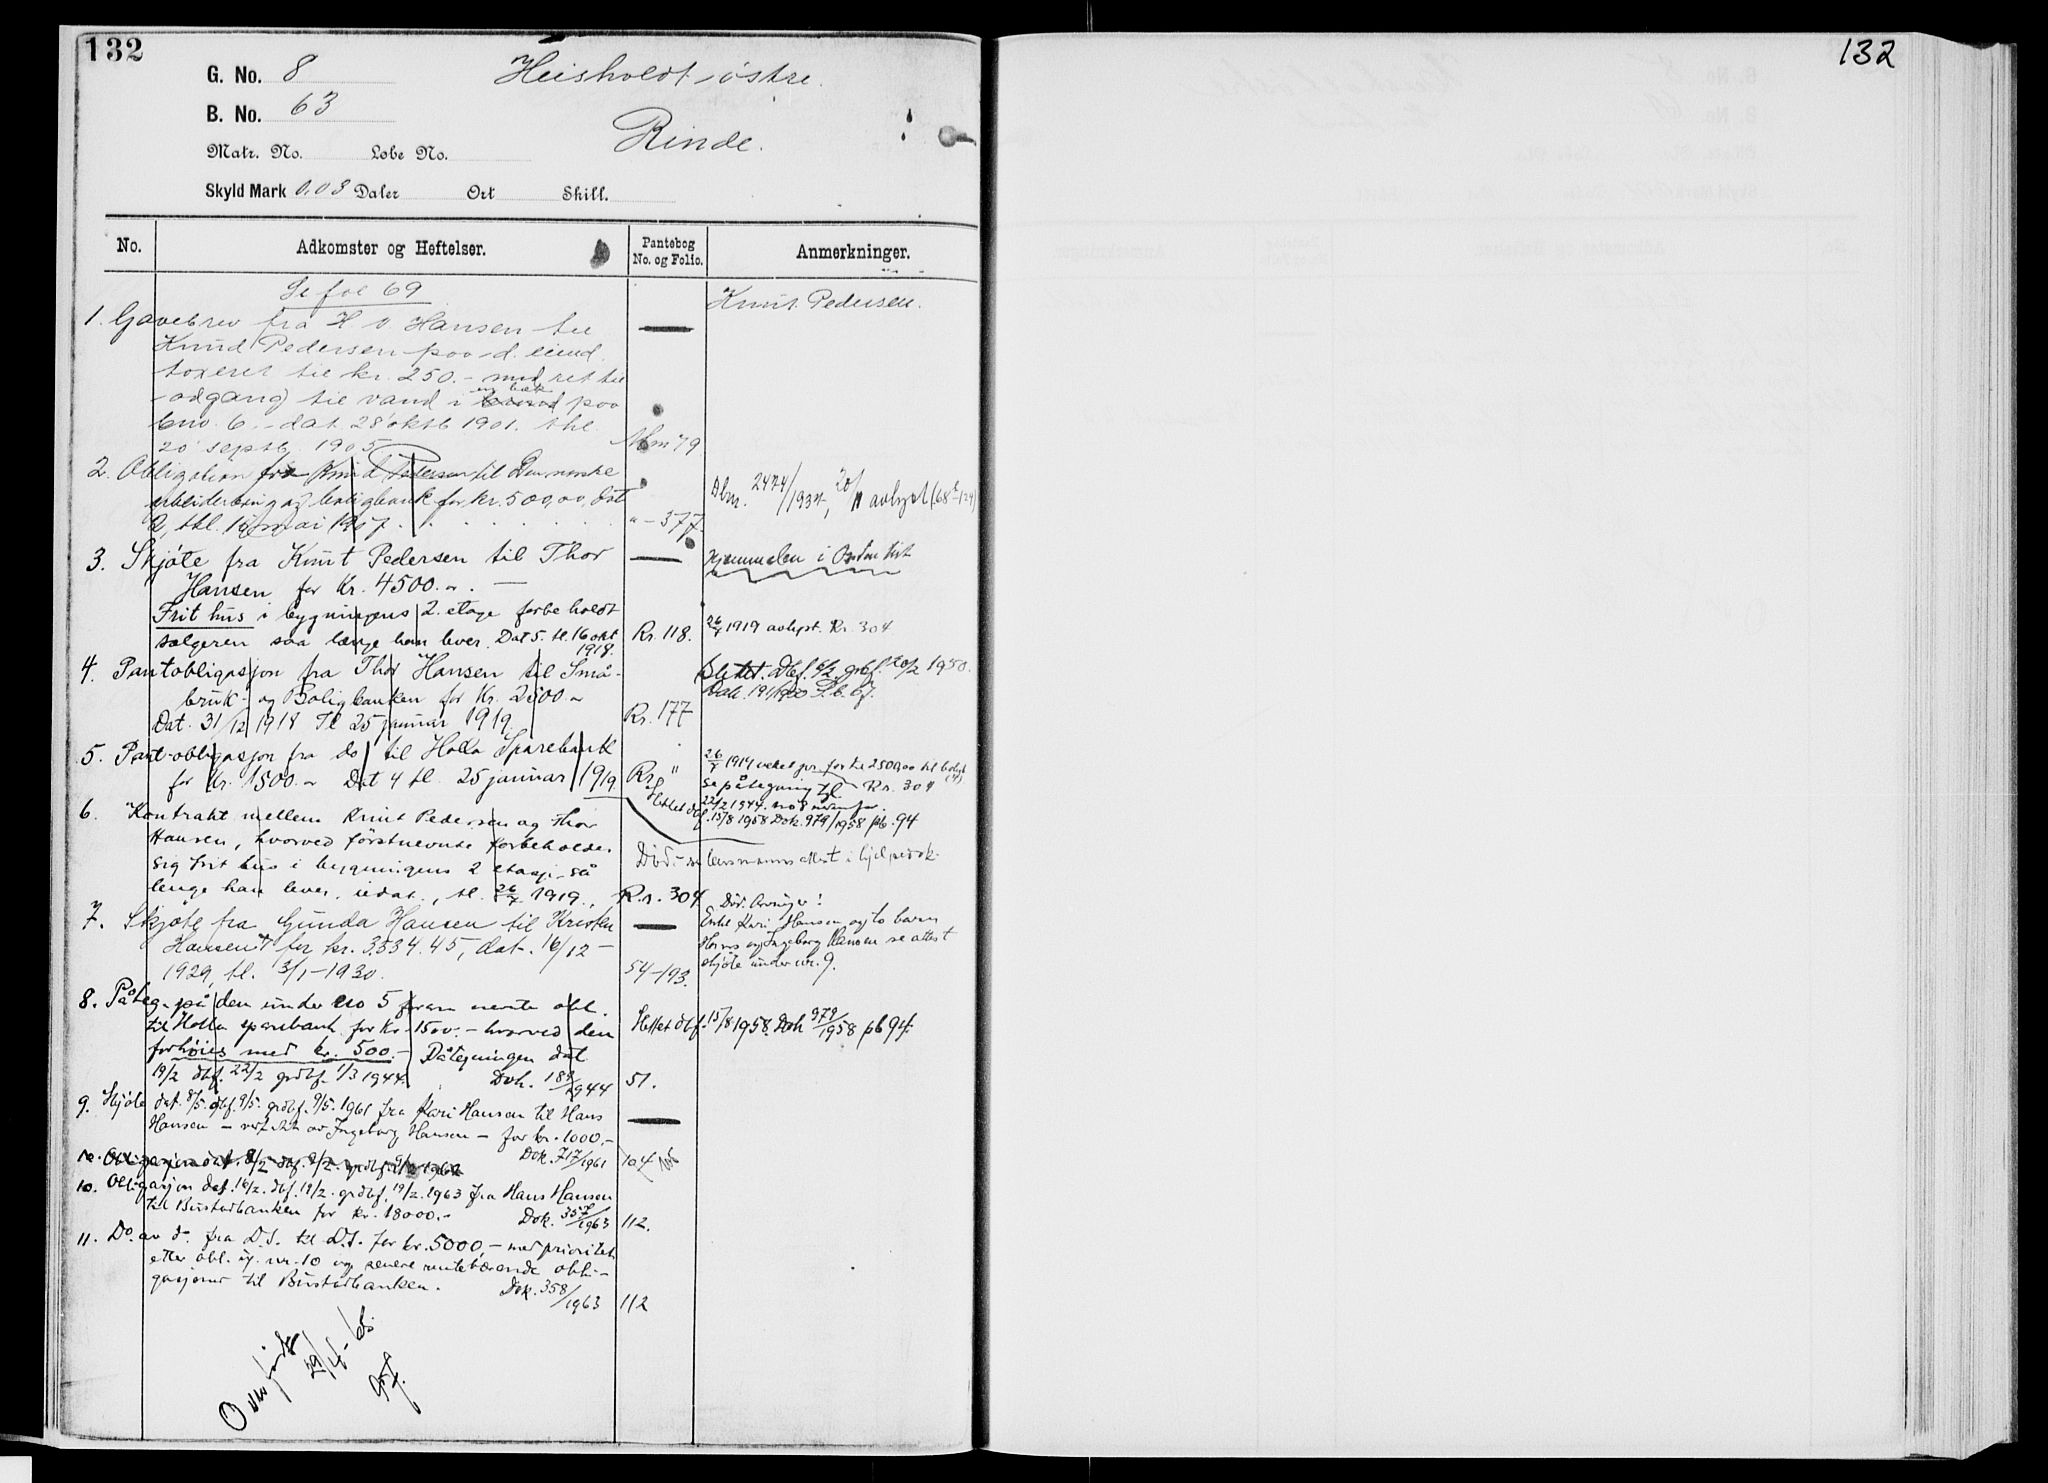 132
132
G. No. 8
Heisholdt østre.
B. No. 63
Rinde.
Matr. No. Løbe No.
Skyld Mark 0.03 Daler Ort Skill.
No. Adkomster og Heftelser. Pantebog No. og Folio. Anmerkninger.
Se fol 69
Knut Pedersen.
1. Gavebrev fra H. O. Hansen til
Knud Pedersen paa d. eiend.
taxeret til kr. 250.- med ret til
adgang til vand i en bæk paa
bno. 6. - dat. 28 oktb 1901. thl.
20 septb. 1905
Nm 79
2. Obligation fra Knud Pedersen til Den norske
arbeiderbrug og boligbank for kr. 500,00, dat
thl. mai 1907.
"- 377.
Dbn. 2474/1937, avlyst
3. Skjøte fra Knut Pedersen til Thor
Hansen for Kr. 4500.
Frit hus i bygningens 2. etage forbeholdt
sælgeren saa længe han lever. Dat 5. tl. 16 okt
1918.
Rr. 118.
Hjemmelen i Orden
1919 avlyst. Rr. 304
4. Pantobligasjon fra Thor Hansen til Små-
bruk- og Boligbanken for Kr. 2500
Dat. 31/12 1918 Tl 25 januar 1919
Rr. 177
Slettet. Dbf. grbf. 20/2 1950.
5. Pant-obligasjon fra do til Holla Sparebank
for Kr. 1500. Dat 4 tl. 25 januar 1919.
Rr. "
1919 for kr 2500,00 til
se påtegning Rr. 304
22/2 1944. no 8 nedenfor.
Slettet dbf. 15/8 1958 Dok. 979/1958 pb. 94
6. Kontrakt mellem Knut Pedersen og Thor
Hansen, hvorved førstnevnte forbeholder
sig frit hus i bygningens 2 etasje så
lenge han lever, udat., tl. 26/7 1919.
Rr. 304
Død - se lensmanns attest i
7. Skjøte fra Gunda Hansen til Kristen
Hansen for kr. 3534.45, dat. 16/12 -
1929, tl. 3/1-1930.
54-193.
Død. Arvinger:
Enke Kari Hansen og to barn
Hans og Ingeborg Hansen se attest
skjøte under nr. 9.
8. Påteg. på den under no 5 foran nevnte obl.
til Holla sparebank for kr. 1500.- hvorved den
forhøies med kr. 500.- Påtegningen dat
19/2 dbf. 22/2 grdbf. 1/3 1944.
Dok. 1944
51.
Slettet dbf. 15/8 1958. Dok 979/1958 pb 94.
9. Skjøte dat. 8/5. dbf. 9/5. grdbf. 9/5. 1961 fra Kari Hansen til Hans
Hansen - av Ingeborg Hansen - for kr. 1000,-
Dok. 717/1961
104
10. Obligasjon dat. 16/2. dbf. 19/2. grdbf. 19/2. 1963 fra Hans Hansen
til Bustadbanken for kr. 18000.-
Dok. 357/1963
112.
11. Do. av d. fra D.S. til D.S. for kr. 5000,- med prioritet
etter obl. nr. 10 og senere rentebærende obli-
gasjoner til Bustadbanken.
Dok. 358/1963
112
Overført
29/4-65